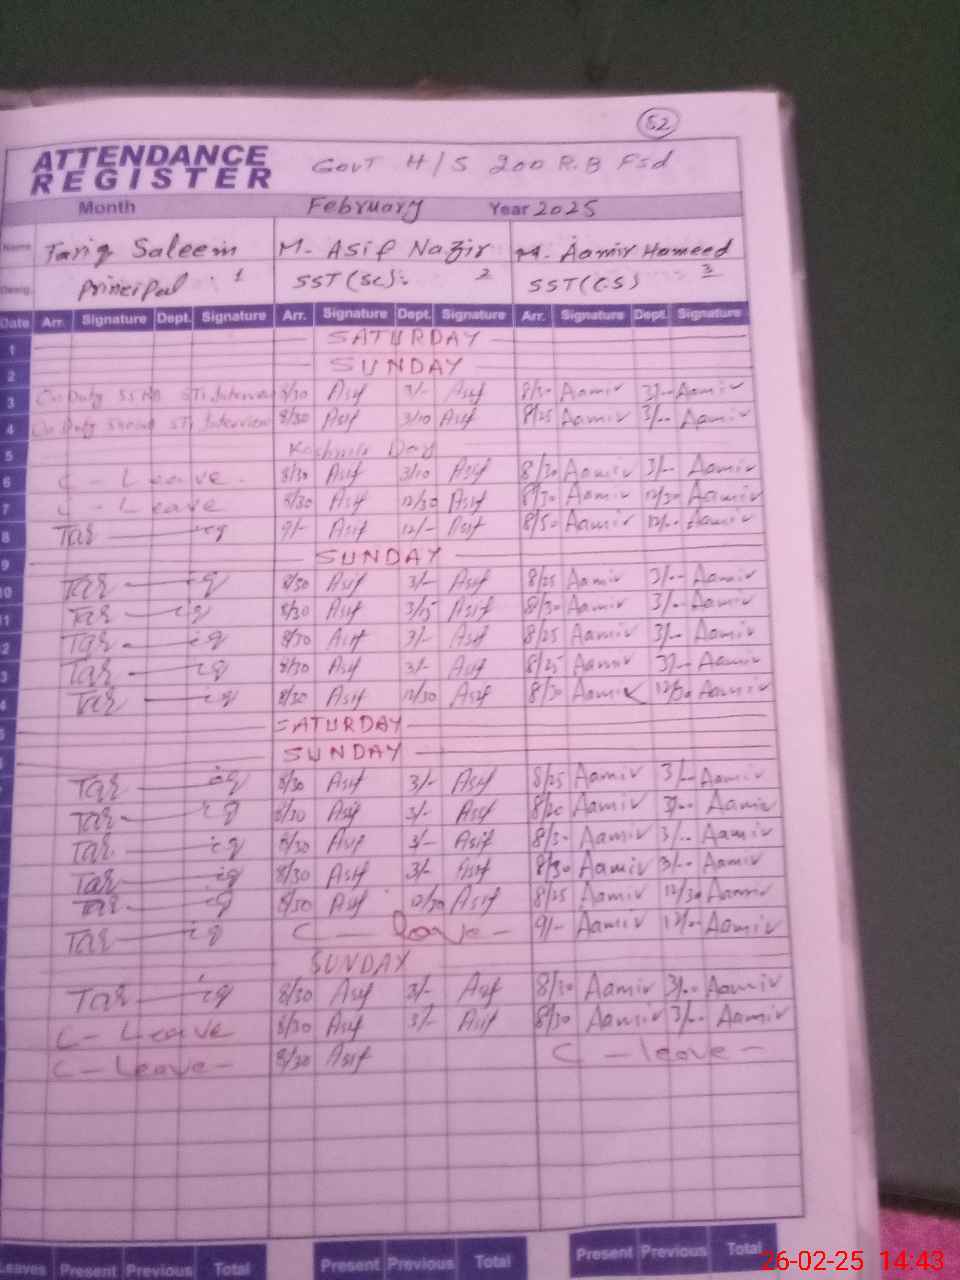 52
ATTENDANCE REGISTER Govt H/S 200 R.B Fsd
Month February Year 2025
Name Tariq Saleem M. Asif Nazir M. Aamir Hameed
Desig. Principal 1 SST (Sc): 2 SST (CS) 3
Date Arr. Signature Dept. Signature Arr. Signature Dept. Signature Arr. Signature Dept. Signature
1 SATURDAY
2 SUNDAY
3 On Duty STI Interview 8/30 Asif 3/- Asif 8/30 Aamir 3/-- Aamir
4 On Duty STI Interview 8/30 Asif 3/10 Asif 8/25 Aamir 3/-- Aamir
5 Kashmir Day
6 C - Leave 8/30 Asif 3/10 Asif 8/30 Aamir 3/-- Aamir
7 C - Leave 8/30 Asif 12/30 Asif 8/30 Aamir 12/30 Aamir
8 Tar iq 9/- Asif 12/- Asif 8/50 Aamir 12/-- Aamir
9 SUNDAY
10 Tar iq 8/30 Asif 3/- Asif 8/25 Aamir 3/-- Aamir
11 Tar iq 8/30 Asif 3/15 Asif 8/30 Aamir 3/-- Aamir
2 Tar iq 8/30 Asif 3/- Asif 8/25 Aamir 3/-- Aamir
3 Tar iq 8/30 Asif 3/- Asif 8/25 Aamir 3/-- Aamir
4 Tar iq 8/30 Asif 12/30 Asif 8/30 Aamir 12/30 Aamir
SATURDAY
SUNDAY
Tar iq 8/30 Asif 3/- Asif 8/25 Aamir 3/-- Aamir
Tar iq 8/30 Asif 3/- Asif 8/20 Aamir 3/-- Aamir
Tar iq 8/30 Asif 3/- Asif 8/30 Aamir 3/-- Aamir
Tar iq 8/30 Asif 3/- Asif 8/30 Aamir 3/-- Aamir
Tar iq 8/30 Asif 12/30 Asif 8/25 Aamir 12/30 Aamir
Tar iq C - leave - 9/- Aamir 12/-- Aamir
SUNDAY
Tar iq 8/30 Asif 3/- Asif 8/30 Aamir 3/-- Aamir
C - Leave 8/30 Asif 3/- Asif 8/30 Aamir 3/-- Aamir
C - Leave - 8/30 Asif C - leave -
Leaves Present Previous Total Present Previous Total Present Previous Total
26-02-25 14:43